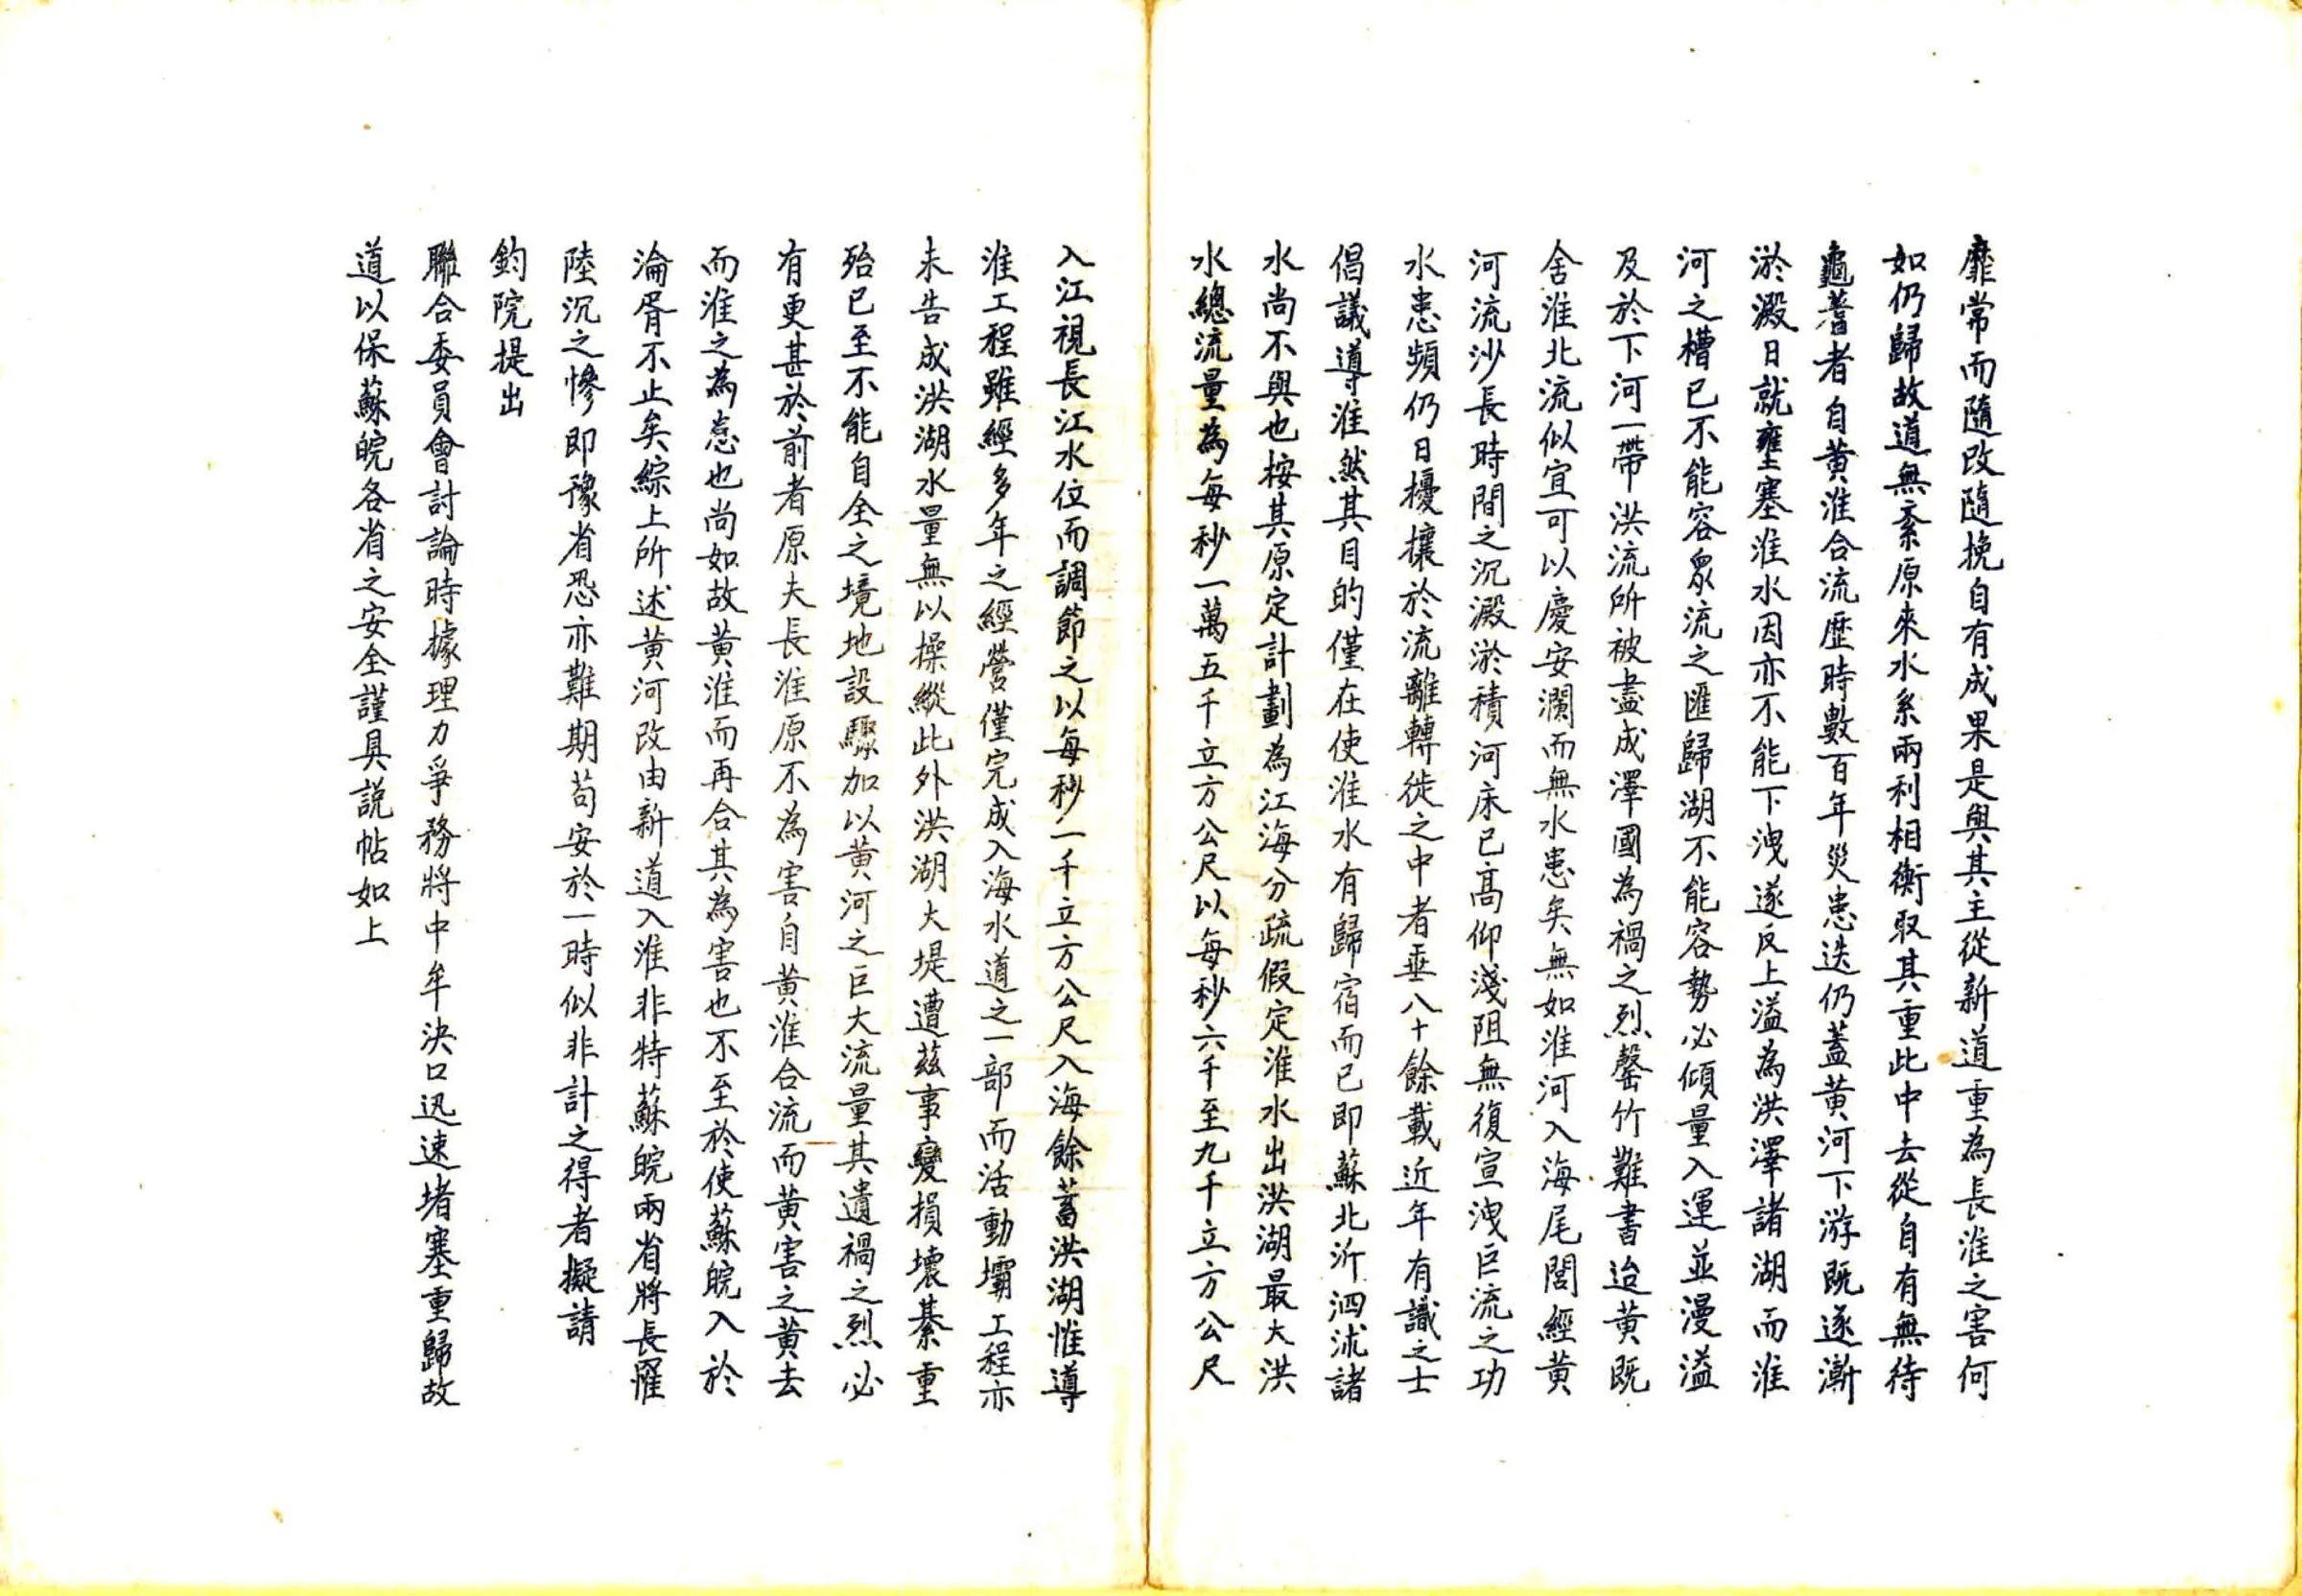 靡常而隨改隨挽自有成果是與其主從新道重為長淮之害何
如仍歸故道無紊原來水系兩利相衡取其重此中去從自有無待
龜蓍者自黄淮合流歷時數百年災患迭仍蓋黄河下游既逐漸
淤澱日就壅塞淮水因亦不能下洩遂反上溢為洪澤諸湖而淮
河之槽已不能容衆流之匯歸湖不能容勢必傾量入運並漫溢
及於下河一帶洪流所被盡成澤國為禍之烈罄竹難書迨黄既
舍淮北流似宜可以慶安瀾而無水患矣無如淮河入海尾閭經黄
河流沙長時間之沉澱淤積河床已高仰淺阻無復宣洩巨流之功
水患頻仍日擾攘於流離轉徙之中者垂八十餘載近年有識之士
倡議導淮然其目的僅在使淮水有歸宿而已即蘇北沂泗沭諸
水尚不與也按其原定計劃為江海分疏假定淮水出洪湖最大洪
水總流量為每秒一萬五千立方公尺以每秒六千至九千立方公尺
入江視長江水位而調節之以每秒一千立方公尺入海餘蓄洪湖惟導
淮工程雖經多年之經營僅完成入海水道之一部而活動壩工程亦
未告成洪湖水量無以操縱此外洪湖大堤遭茲事變損壞綦重
殆已至不能自全之境地設驟加以黄河之巨大流量其遺禍之烈必
有更甚於前者原夫長淮原不為害自黄淮合流而黄害之黄去
而淮之為患也尚如故黄淮而再合其為害也不至於使蘇皖入於
淪胥不止矣綜上所述黄河改由新道入淮非特蘇皖兩省將長罹
陸沉之慘即豫省恐亦難期苟安於一時似非計之得者擬請
鈞院提出
聯合委員會討論時據理力爭務將中牟決口迅速堵塞重歸故
道以保蘇皖各省之安全謹具説帖如上